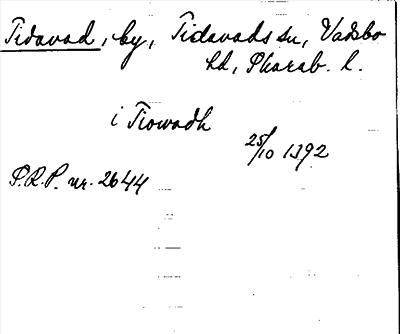 Tidavad, by, Tidavads sn, Vadsbo
hd, Skarab. l.
i Tiowadh
25/10 1392
P.R.P. nr. 2644